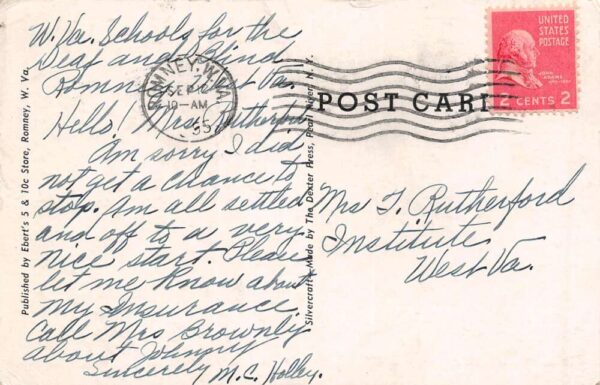 W. Va. Schools for the
Deaf and Blind
Romney, West Va.
Hello! Mrs. Rutherford
Am sorry I did
not get a chance to
stop. Am all settled
and off to a very
nice start. Please
let me know about
my Insurance.
Call Mrs Brownly
about Johnny
Sincerely M.C. Holley.
Published by Ebert's 5 & 10c Store, Romney, W. Va.
Silvercraft Made by The Dexter Press, Pearl River, N. Y.
ROMNEY, W. VA.
SEP
10-AM
POST CARD
UNITED
STATES
POSTAGE
JOHN
ADAMS
2 CENTS 2
Mrs T. Rutherford
Institute
West Va.